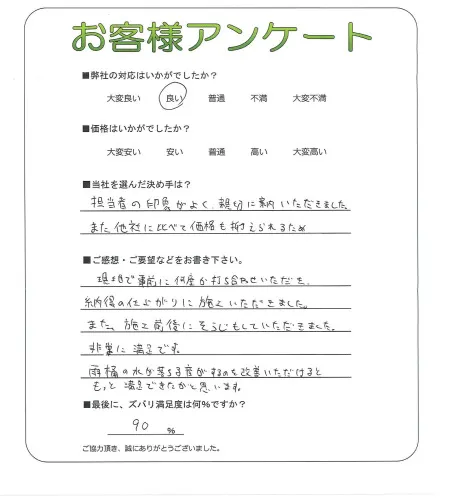 お客様アンケート
■弊社の対応はいかがでしたか？
大変良い 良い 普通 不満 大変不満
■価格はいかがでしたか？
大変安い 安い 普通 高い 大変高い
■当社を選んだ決め手は？
担当者の印象がよく、親切に案内いただきました。
また他社に比べて価格も抑えられるため
■ご感想・ご要望などをお書き下さい。
現地で事前に何度か打ち合わせいただき、
納得の仕上がりに施工いただきました。
また、施工前後にそうじもしていただきました。
非常に満足です。
雨樋の水が落ちる音がするのを改善いただけると
もっと満足できたかと思います。
■最後に、ズバリ満足度は何%ですか？
90 %
ご協力頂き、誠にありがとうございました。